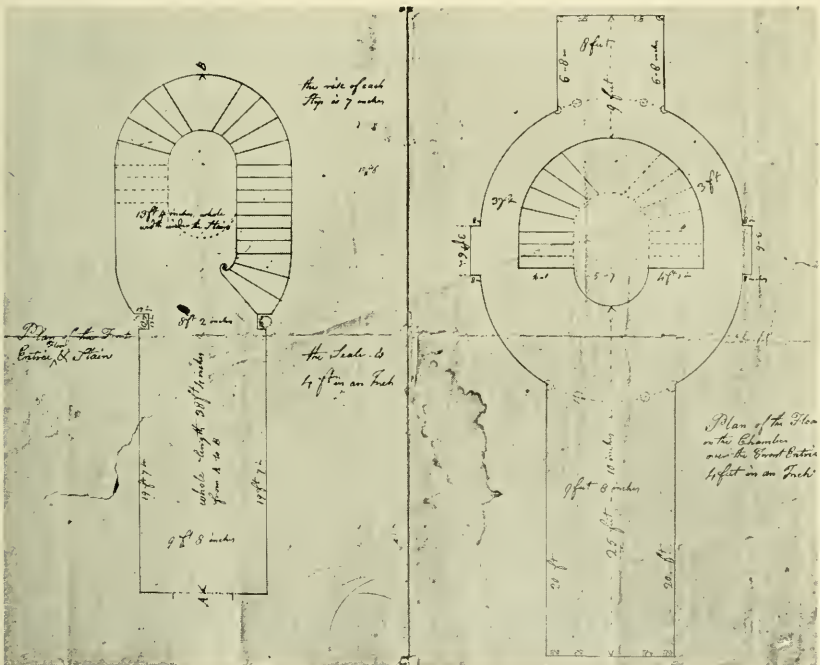 B
the rise of each
Step is 7 inches
13 ft 4 inches whole
width under the Stairs
8 ft 2 inches
Plan of the Front
Entrie & Stairs
the Scale is
4 ft in an Inch
whole length 38 ft 4 inches
from A to B
19 ft 7 in
19 ft 7 in
9 ft 8 inches
A
8 feet
6-8 in
6-8 inches
9 feet
3 ft 2
3 ft
5-7
Plan of the Floor
on the Chamber
over the Front Entrie
4 feet in an Inch
9 feet 8 inches
25 feet 10 inches
20 ft
20 ft